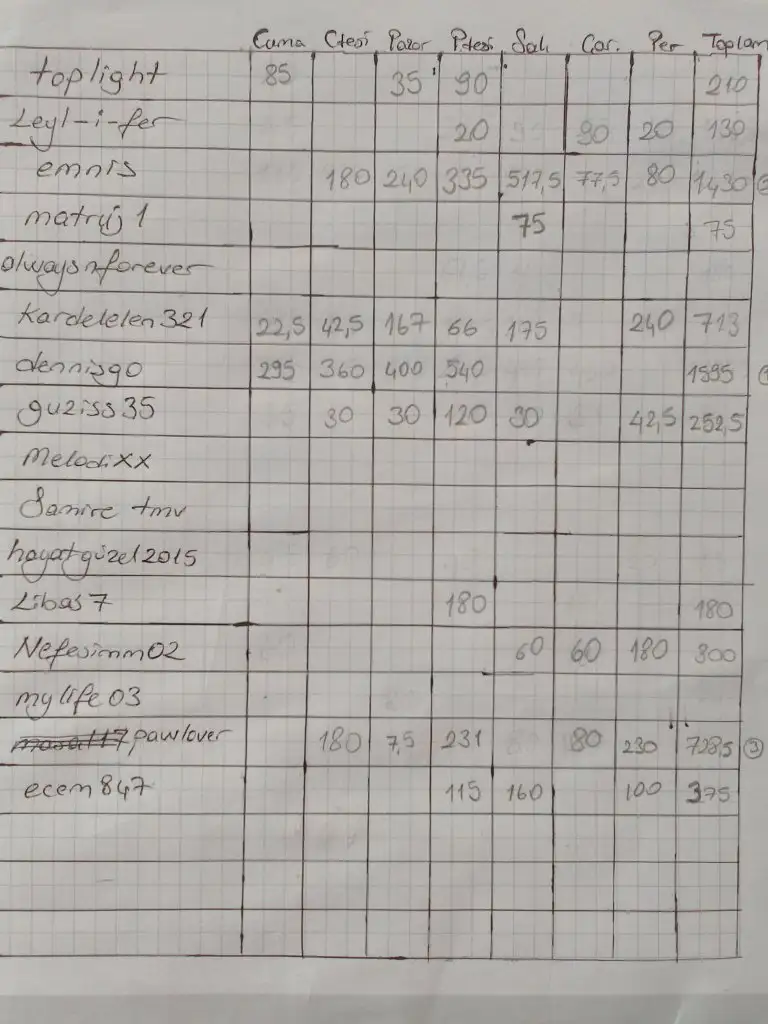 Cuma Ctesi Pazar Ptesi Salı Çar. Per Toplam
toplight 85 35 90 210
Leyl-i-fer 20 90 20 130
emnis 180 240 335 517,5 77,5 80 1430
matruş 1 75 75
alwaysnforever
Kardelelen321 22,5 42,5 167 66 175 240 713
dennis90 295 360 400 540 1595 1
guziss35 30 30 120 30 42,5 252,5
Melodixx
Samire tmv
hayatgüzel2015
Libas7 180 180
Nefesimm02 60 60 180 300
mylife03
pawlover 180 7,5 231 80 230 728,5 3
ecem847 115 160 100 375